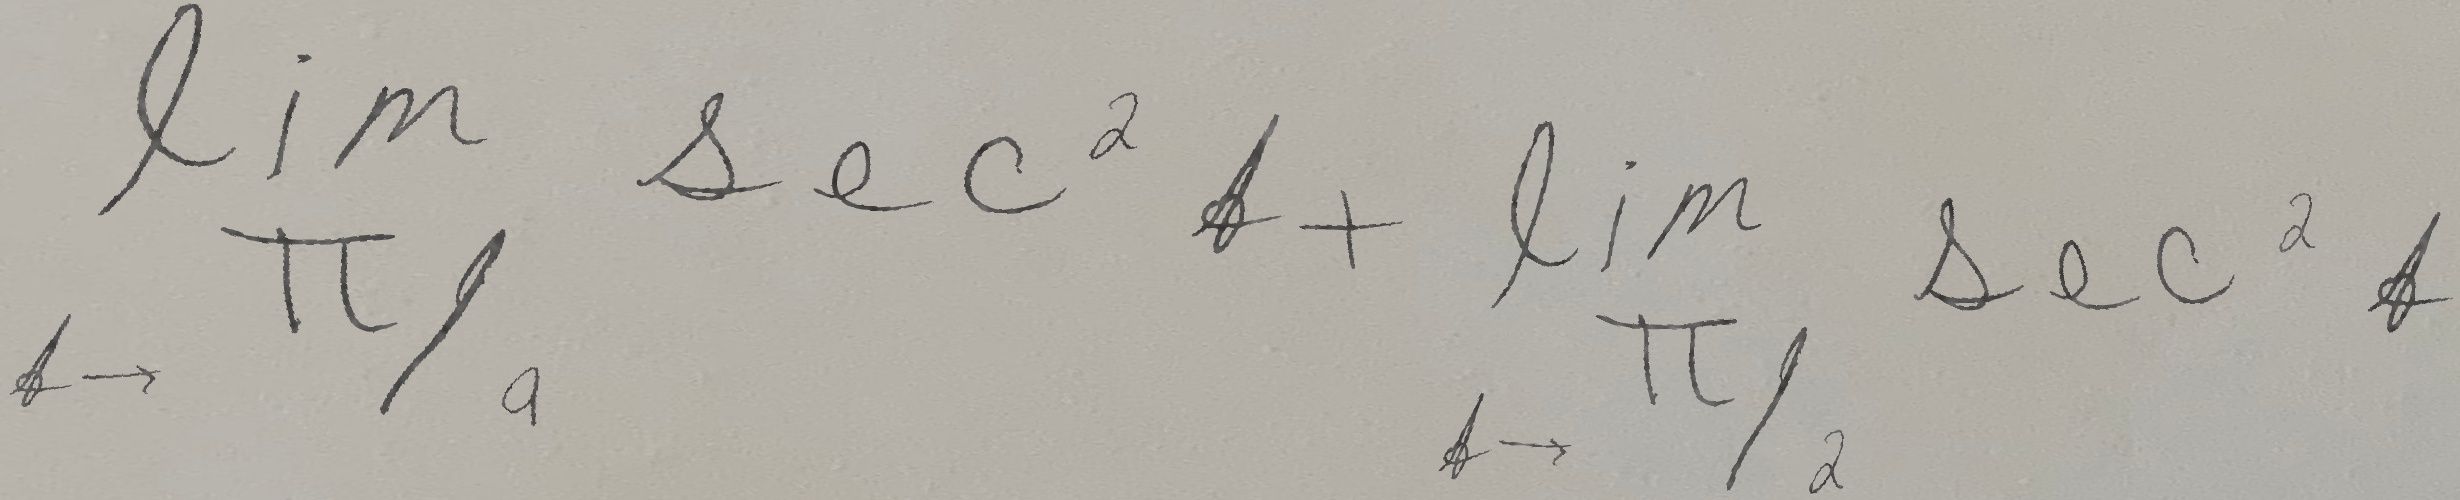 lim t→π/9 sec² t + lim t→π/2 sec² t